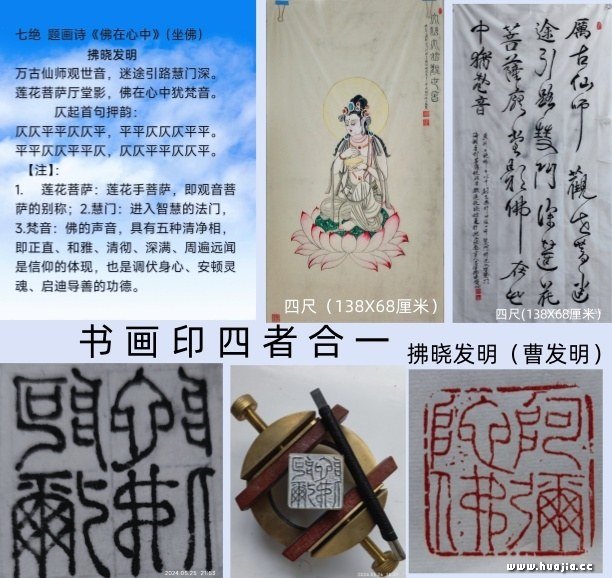 七绝 题画诗《佛在心中》（坐佛）
拂晓发明
万古仙师观世音，迷途引路慧门深。
莲花菩萨厅堂影，佛在心中犹梵音。
仄起首句押韵：
仄仄平平仄仄平，平平仄仄仄平平。
平平仄仄平平仄，仄仄平平仄仄平。
【注】：
1. 莲花菩萨：莲花手菩萨，即观音菩
萨的别称；2.慧门：进入智慧的法门，
3.梵音：佛的声音，具有五种清净相，
即正直、和雅、清彻、深满、周遍远闻
是信仰的体现，也是调伏身心、安顿灵
魂、启迪导善的功德。
四尺（138X68厘米）
古仙师 觀世音迷
途引路慧门深蓮花
菩薩廳堂影佛在心
中猶梵音
四尺(138X68厘米)
书画印四者合一
拂晓发明（曹发明）
2024.05.25 21:53
阿彌陀佛
www.huajia.cc